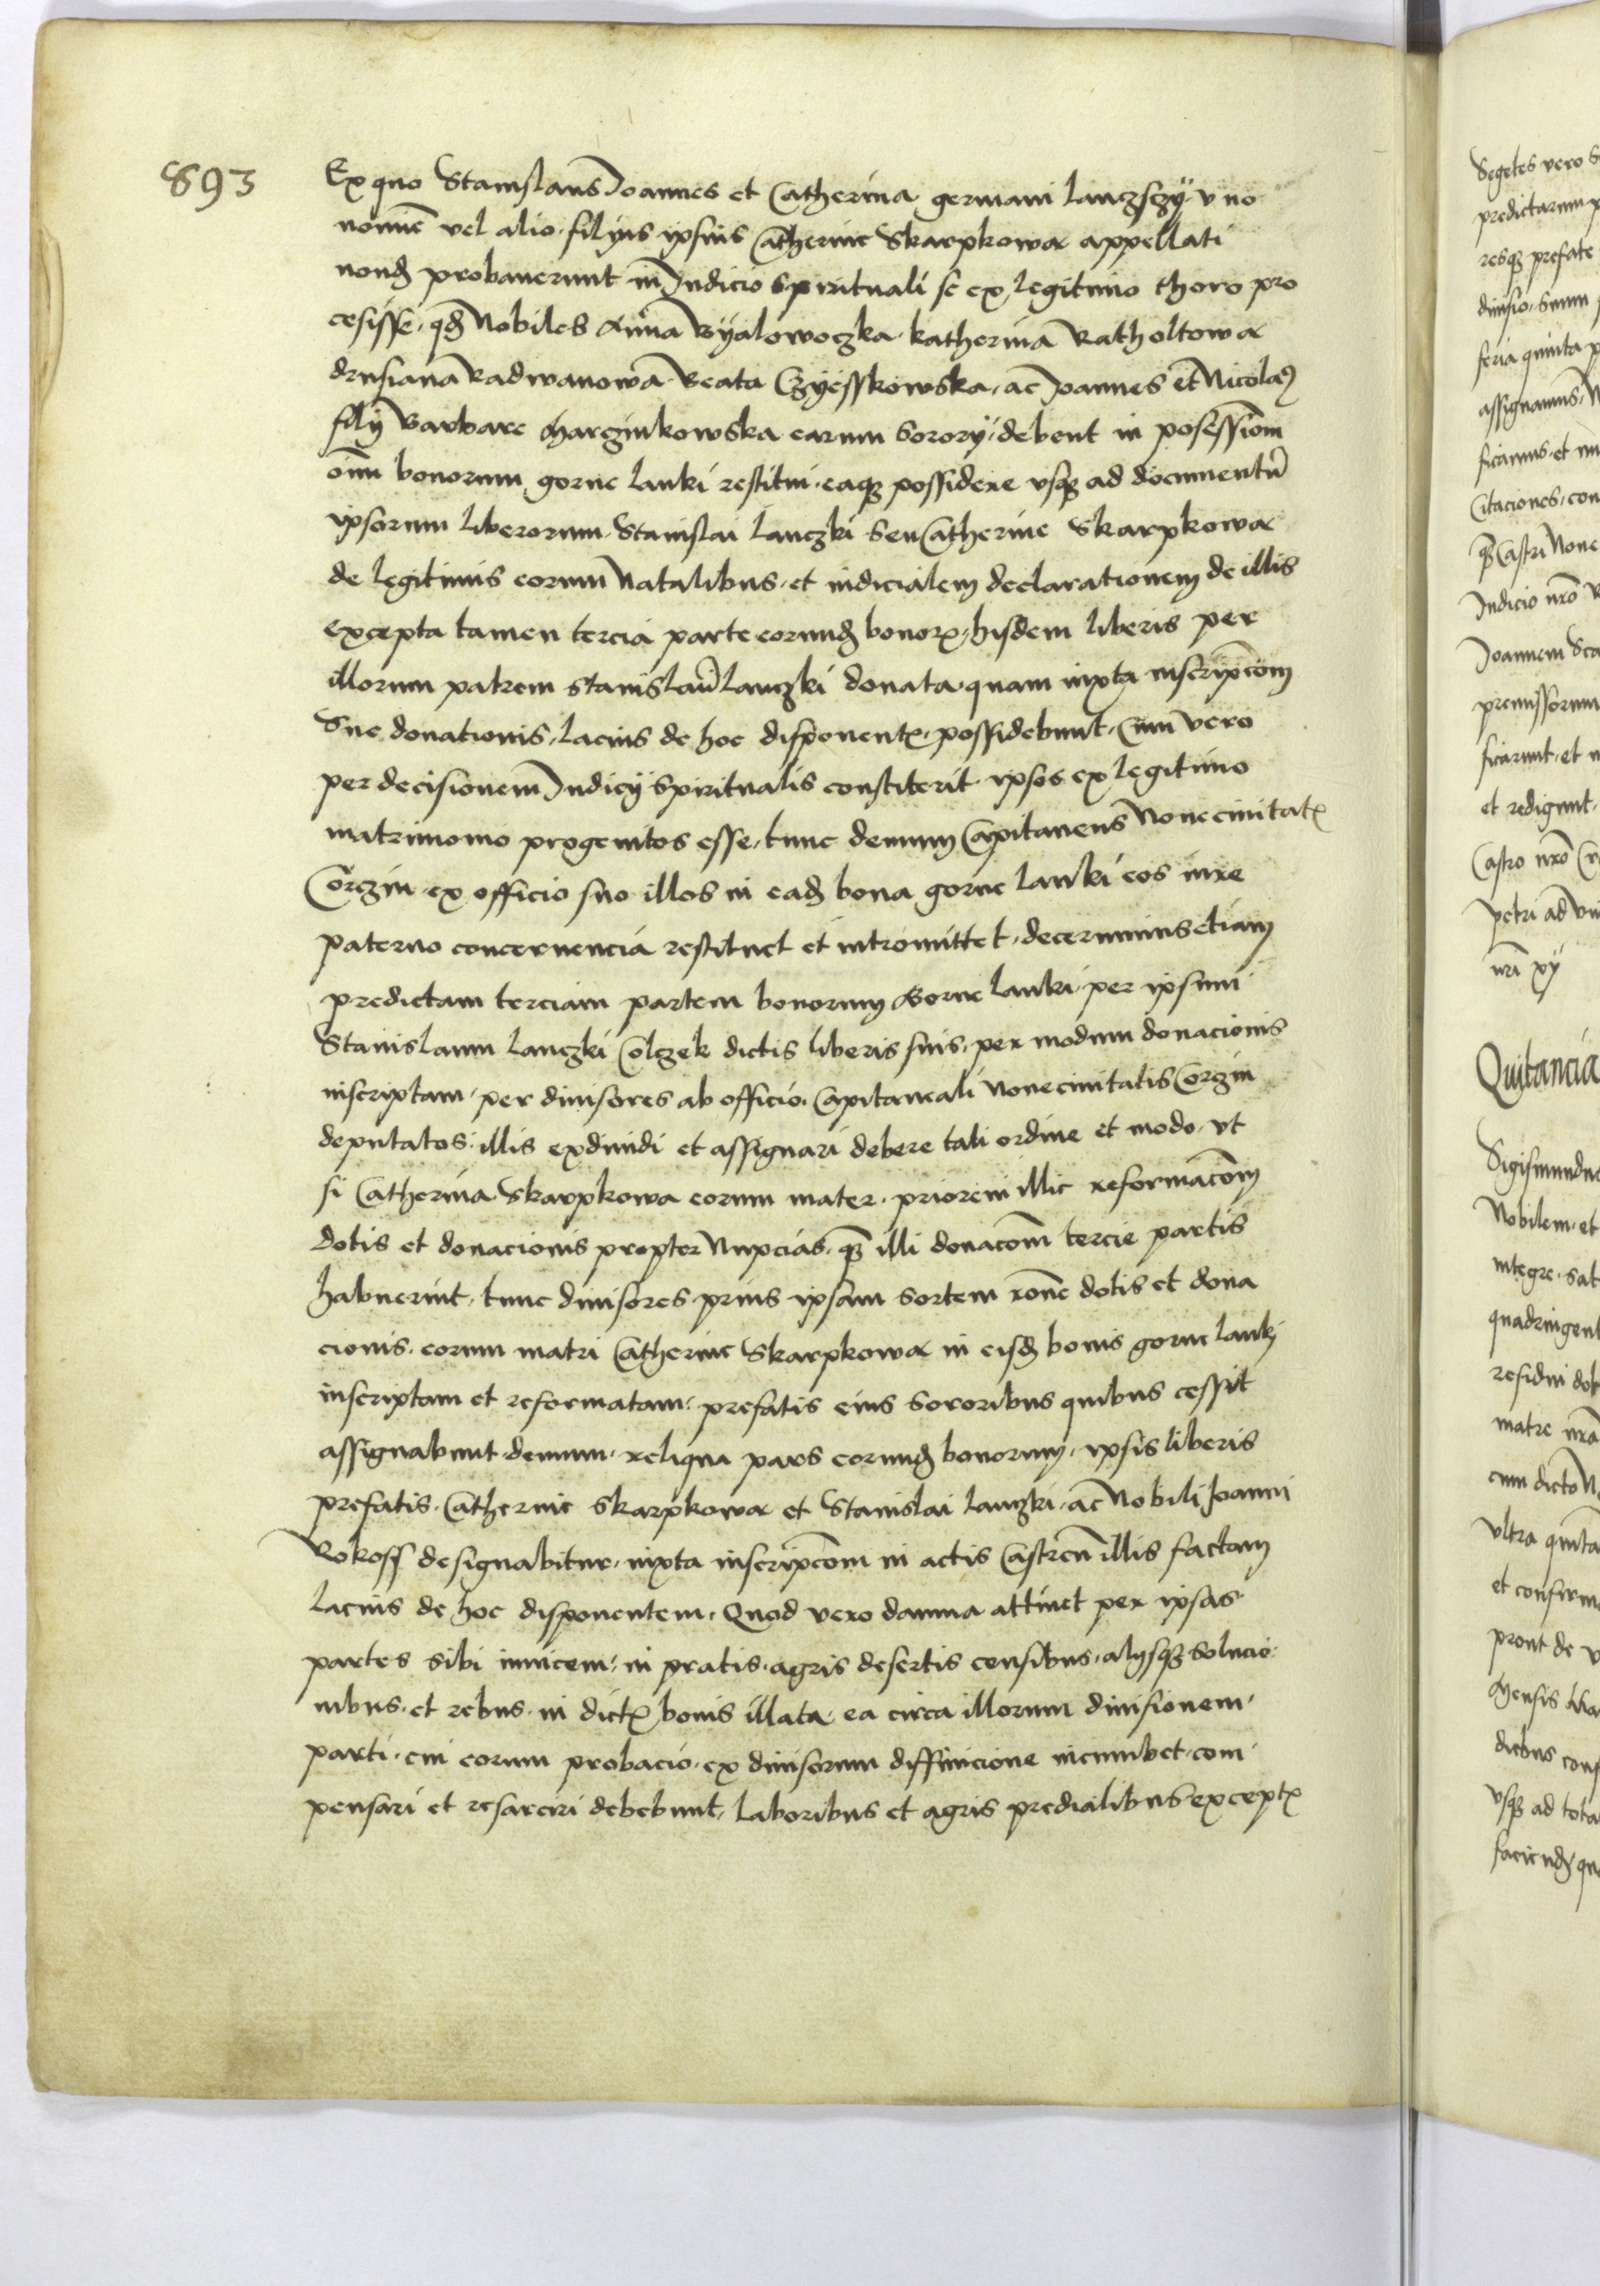 893
Ex quo Stanislaus Joannes et Catherina germani lanczsczÿ vno
nomīe vel alio filijus ipsius Catherine Skarpkowa appellati
nondū probauerunt in Judicio spirituali se ex legitimo thoro pro
cesisse. qd Nobiles Anna Byalowoczka katherina Ratholtowa
drusiana Radwanowa Beata Czyesskowska, ac Joannes et Nicolaus
filij Barbare Marczinkowska earum sororij, debent in posessiom
oīm bonorum gorne lanki restitui eaqʒ possidere vsqʒ ad documentū
ipsorum liberorum Stanislai lanczki seu Catherine Skarpkowa
de legitimis eorum Natalibus et iudicialem declarationem de illis
excepta tamen tercia parte eorund bonor, hisdem liberis per
illorum patrem stanislaū lanczki donata quam iuxta inscripcōm
Sue donationis, lacius de hoc disponent, possidebunt, Cum vero
per decisionem Judicij spiritualis constiterit ipsos ex legitimo
matrimonio progenitos esse, tunc demum Capitaneus Nonecinitat
Corczin ex officio suo illos in ead bona gorne lanki eos iure
paterno concernencia restituet et intromittet, decernimus etiam
predictam terciam partem bonorum Gorne lanki per ipsum
Stanislaum lanczki Colczek dictis liberis suis, per modum donacionis
inscriptam, per diuisores ab officio Capitaneali Nonecinitatis Corczin
deputatos illis exdiuidi et assignari debere tali ordine et modo, vt
si Catherina Skarpkowa eorum mater priorem illic reformacōm
dotis et donacionis propter Nupcias, qʒ illi donacōm tercie partis
habuerint, tunc diuisores prius ipsam sortem rōne dotis et dona
cionis eorum matri Catherine Skarpkowa in eisd bonis gorne lanki
inscriptam et reformatam prefatis eius sororibus quibus cessit
assignabunt demum reliqua pars eorund bonorum, ipsis liberis
prefatis Catherine Skarpkowa et Stanislai lanczki ac Nobili Joanni
Rokoss designabitur, iuxta inscripcōm in actis Castren illis factam
lacius de hoc disponentem. Quod vero damna attinet per ipsas
partes sibi inuicem in pratis agris desertis censibus alijsqʒ solucio
nibus et rebus in dict bonis illata ea circa illorum diuisionem
parti cui eorum probacio ex diuisorum diffinicione incumbet com
pensari et resarciri debebunt, laboribus et agris predialibus except
Segetes vero
predictarum
resqʒ prefate
diuisio, suum
feria quinta
assignamus,
ficamus et
Citaciones, con
qʒ Castri None
Judicio nro
Joannem
premissorum
ficarunt, et
et redigunt
Castro nro
petri ad
nri xv
Quitancia
Sigismundus
Nobilem et
integre, sat
quadringent
residui dot
matre nra
cum dicto
vltra quita
et confirm
prout de
Mensis
diebus cons
vsqʒ ad tota
faciend